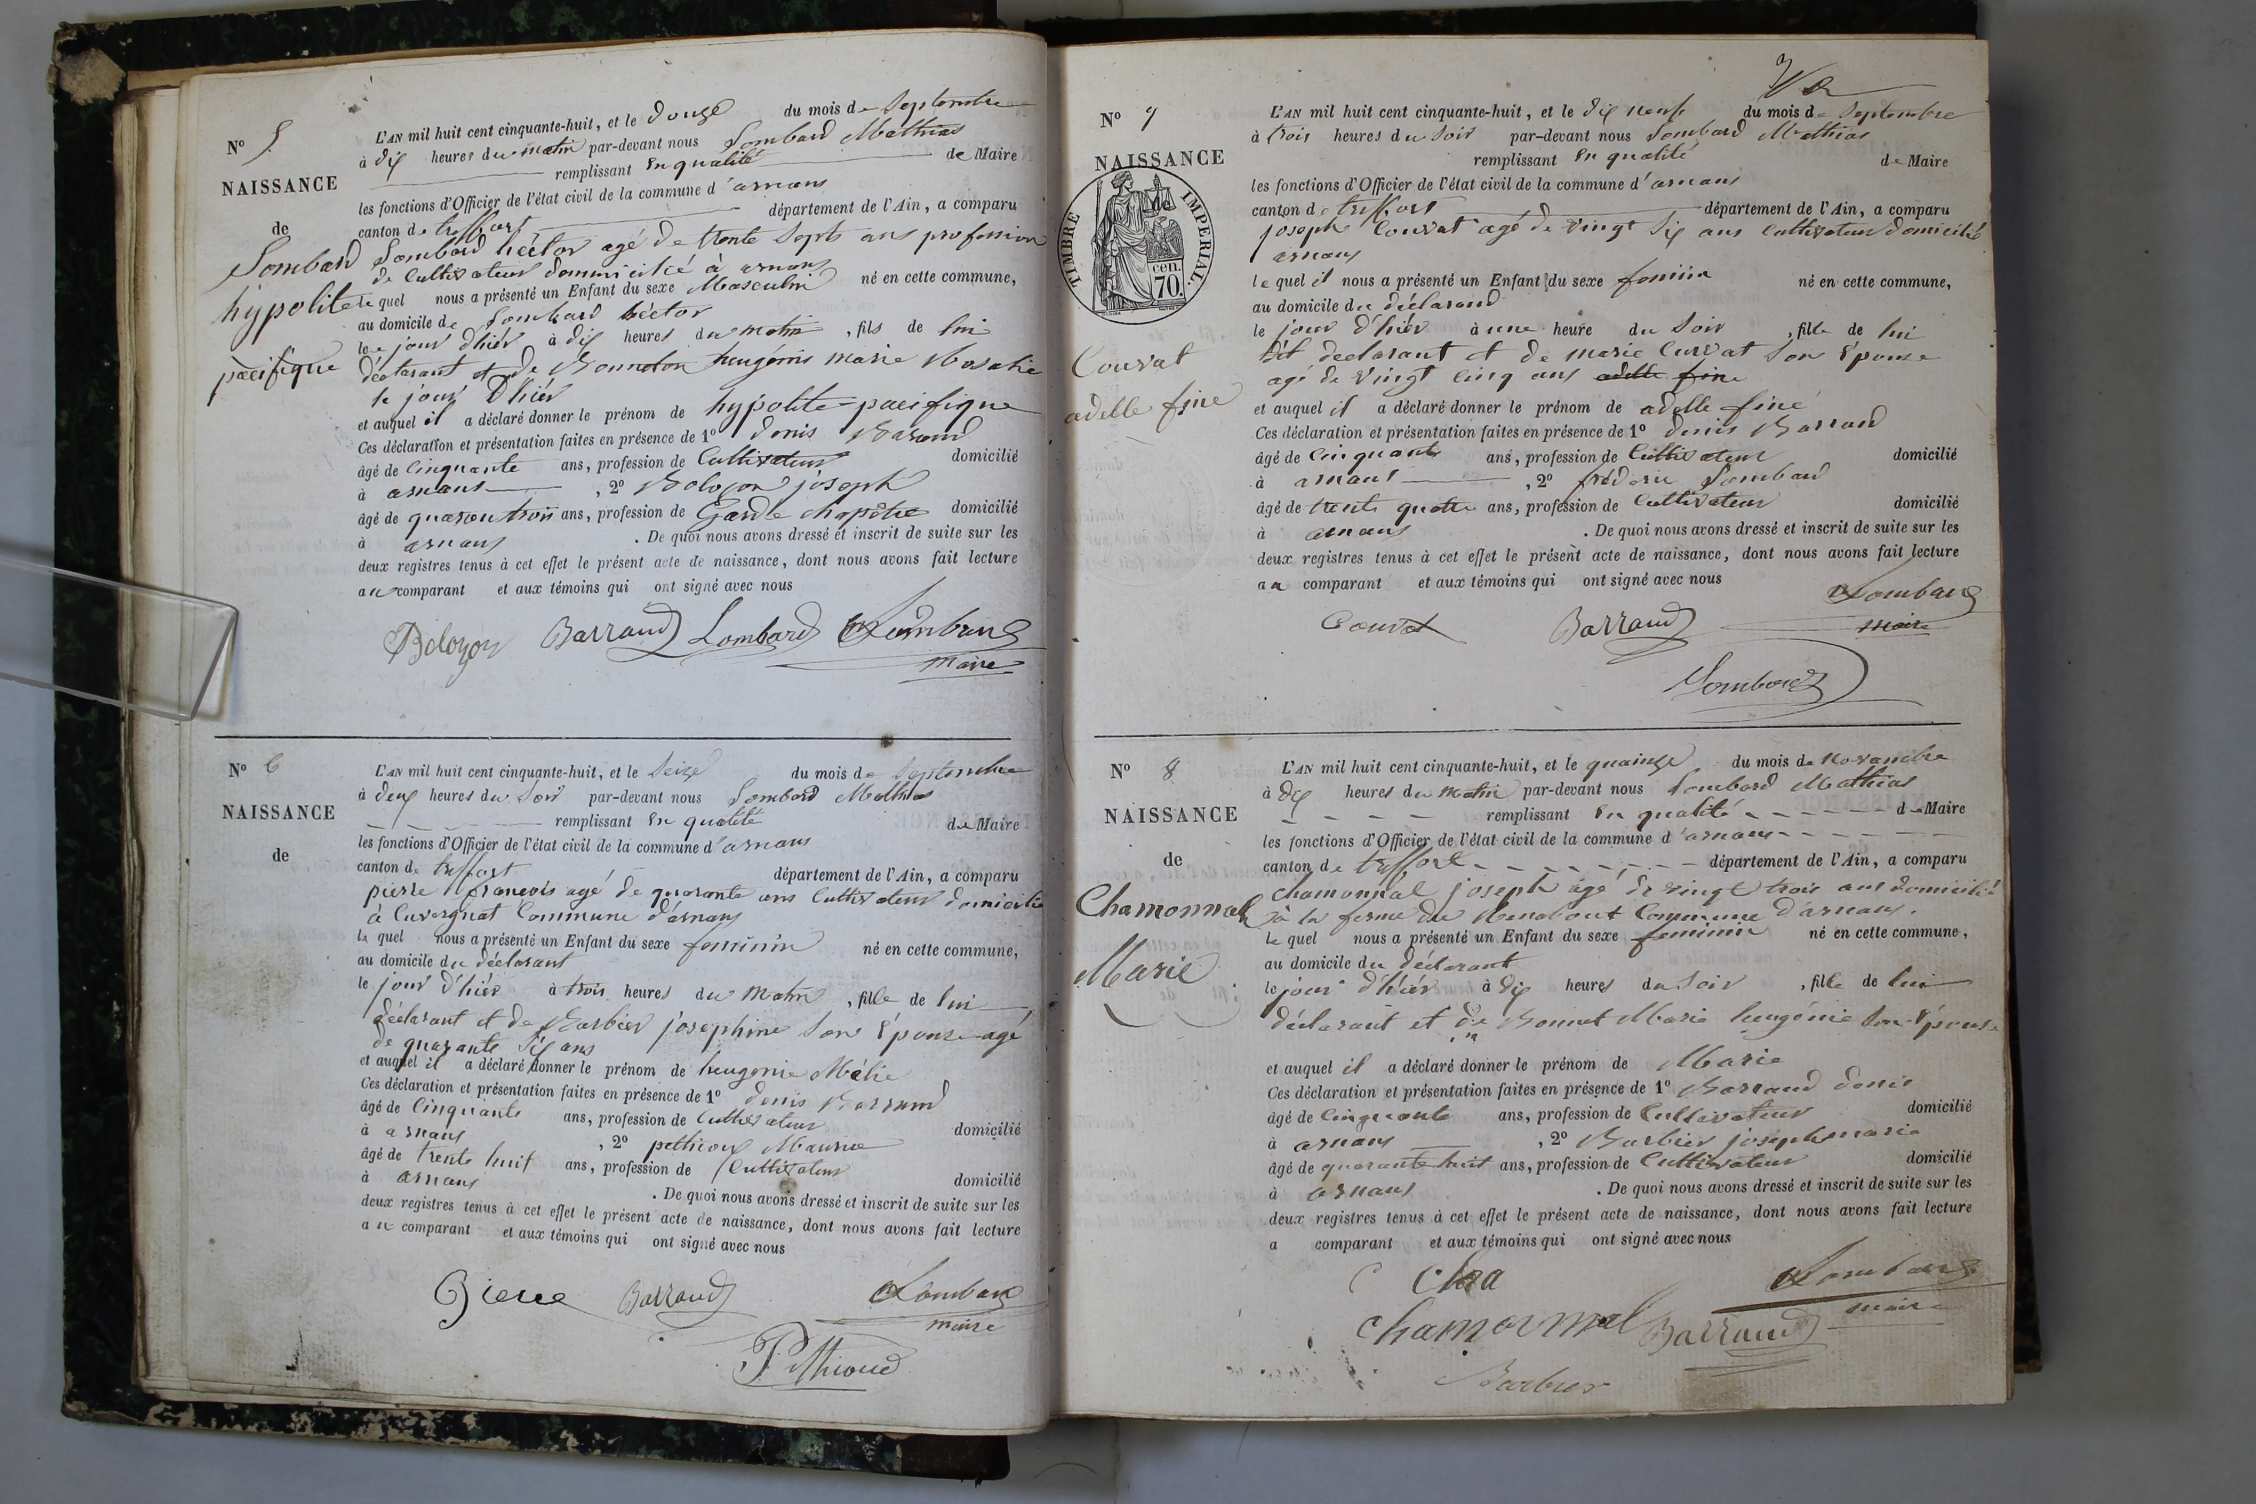 N° 5
NAISSANCE
de
Lombard
hypolite
pacifique
L'AN mil huit cent cinquante-huit, et le douze du mois de Septembre
à dix heures du matin par-devant nous Lombard Mathias
remplissant en qualité de Maire
les fonctions d'Officier de l'état civil de la commune d'arnans
canton de treffort département de l'Ain, a comparu
Lombard héctor agé de trente Septs ans profession
de Cultivateur domicilié à arnans
le quel nous a présenté un Enfant du sexe Masculin né en cette commune,
au domicile de Lombard héctor
le jour d'hiér à dix heures du matin, fils de lui
déclarant et de Bonneton heugenis marie Rosalie
le jour D'hiér
et auquel il a déclaré donner le prénom de hypolite-pacifique
Ces déclaration et présentation faites en présence de 1° denis Barand
âgé de Cinquante ans, profession de Cultivateur domicilié
à arnans, 2° Boloyon joseph
âgé de quarante trois ans, profession de Garde chapétre domicilié
à arnans. De quoi nous avons dressé et inscrit de suite sur les
deux registres tenus à cet effet le présent acte de naissance, dont nous avons fait lecture
au comparant et aux témoins qui ont signé avec nous
Boloyon Barraud Lombard Lombard
maire
N° 6
NAISSANCE
de
L'AN mil huit cent cinquante-huit, et le Seize du mois de Septembre
à deux heures du Soir par-devant nous Lombard Mathias
remplissant en qualité de Maire
les fonctions d'Officier de l'état civil de la commune d'arnans
canton de treffort département de l'Ain, a comparu
pierre francois agé de quarante ans Cultivateur domicilié
à Cuvergnat Commune d'arnans
le quel nous a présenté un Enfant du sexe feminin né en cette commune,
au domicile du déclarant
le jour d'hiér à trois heures du matin, fille de lui
déclarant et de Barbier josephine Son épouse agé
de quarante Six ans
et auquel il a déclaré donner le prénom de heugenie Mélie
Ces déclaration et présentation faites en présence de 1° denis Barraud
âgé de Cinquante ans, profession de Cultivateur
à arnans, 2° pethioux Maurice domicilié
âgé de trente huit ans, profession de Cultivateur
à arnans domicilié
. De quoi nous avons dressé et inscrit de suite sur les
deux registres tenus à cet effet le présent acte de naissance, dont nous avons fait lecture
au comparant et aux témoins qui ont signé avec nous
Pierre Barraud Lombard
maire
Pethioud
N° 7
NAISSANCE
de
TIMBRE IMPERIAL.
70 cen.
Couvat
adelle fine
L'AN mil huit cent cinquante-huit, et le dix neuf du mois de Septembre
à trois heures du Soir par-devant nous Lombard Mathias
remplissant en qualité de Maire
les fonctions d'Officier de l'état civil de la commune d'arnans
canton de treffort département de l'Ain, a comparu
joseph Couvat agé de vingt Six ans Cultivateur domicilié
arnans
le quel il nous a présenté un Enfant du sexe feminin né en cette commune,
au domicile du déclarand
le jour d'hiér à une heure du Soir, fille de lui
dit declarant et de marie Curvat Son épouse
agé de vingt Cinq ans adelle fine
et auquel il a déclaré donner le prénom de adelle fine
Ces déclaration et présentation faites en présence de 1° denis Barraud
âgé de Cinquante ans, profession de Cultivateur domicilié
à arnans, 2° fréderic Lombard
âgé de trente quatre ans, profession de Cultivateur domicilié
à arnans. De quoi nous avons dressé et inscrit de suite sur les
deux registres tenus à cet effet le présent acte de naissance, dont nous avons fait lecture
au comparant et aux témoins qui ont signé avec nous
Couvat Barraud Lombard
maire
Lombard
N° 8
NAISSANCE
de
Chamonnal
Marie
L'AN mil huit cent cinquante-huit, et le quainze du mois de Novembre
à dix heures du matin par-devant nous Lombard Mathias
remplissant en qualité de Maire
les fonctions d'Officier de l'état civil de la commune d'arnans
canton de treffort département de l'Ain, a comparu
Chamonnal joseph agé de vingt trois ans domicilié
à la ferme du Commune d'arnans.
le quel nous a présenté un Enfant du sexe feminin né en cette commune,
au domicile du déclarant
le jour d'hiér à dix heures du Soir, fille de lui
déclarant et de Bonnet Marie heugénie Son épouse
et auquel il a déclaré donner le prénom de Marie
Ces déclaration et présentation faites en présence de 1° Barraud denis
âgé de Cinquante ans, profession de Cultivateur domicilié
à arnans, 2° Barbier joseph marie
âgé de quarante huit ans, profession de Cultivateur domicilié
à arnans. De quoi nous avons dressé et inscrit de suite sur les
deux registres tenus à cet effet le présent acte de naissance, dont nous avons fait lecture
a comparant et aux témoins qui ont signé avec nous
C Cha Lombard
maire
Chamonmal Barraud
Barbier